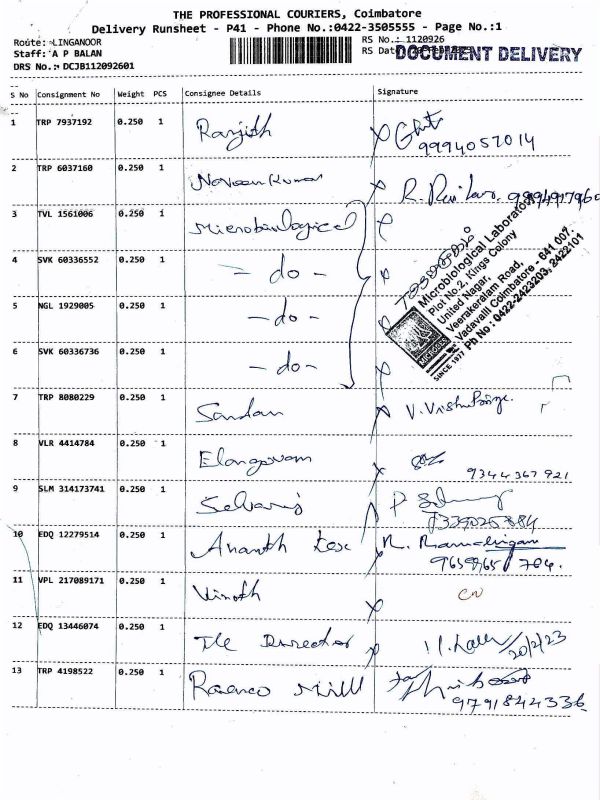 THE PROFESSIONAL COURIERS, Coimbatore
Delivery Runsheet - P41 - Phone No.:0422-3505555 - Page No.:1
Route: LINGANOOR
RS No.: 1120926
Staff: A P BALAN
RS Dat
DOCUMENT DELIVERY
DRS No.: DCJB112092601
S No Consignment No Weight PCS Consignee Details Signature
1 TRP 7937192 0.250 1 Ranjith
9994057014
2 TRP 6037160 0.250 1 Naveen Kumar
3 TVL 1561006 0.250 1 Microbiological
4 SVK 60336552 0.250 1 - do -
5 NGL 1929005 0.250 1 - do -
6 SVK 60336736 0.250 1 - do -
Microbiological Laborator
Plot No.2, Kings Colony
United Nagar,
Veerakeralam Road,
Vadavalli Coimbatore - 641 007.
Ph No : 0422-2423203, 2422101
SINCE 1977
7 TRP 8080229 0.250 1
8 VLR 4414784 0.250 1 Elangovam
9344367921
9 SLM 314173741 0.250 1 Selvaraj
10 EDQ 12279514 0.250 1 Ananth
R. Ramalingam
11 VPL 217089171 0.250 1 Vinoth
12 EDQ 13446074 0.250 1 The Director
20/2/23
13 TRP 4198522 0.250 1 Mill
9791844336